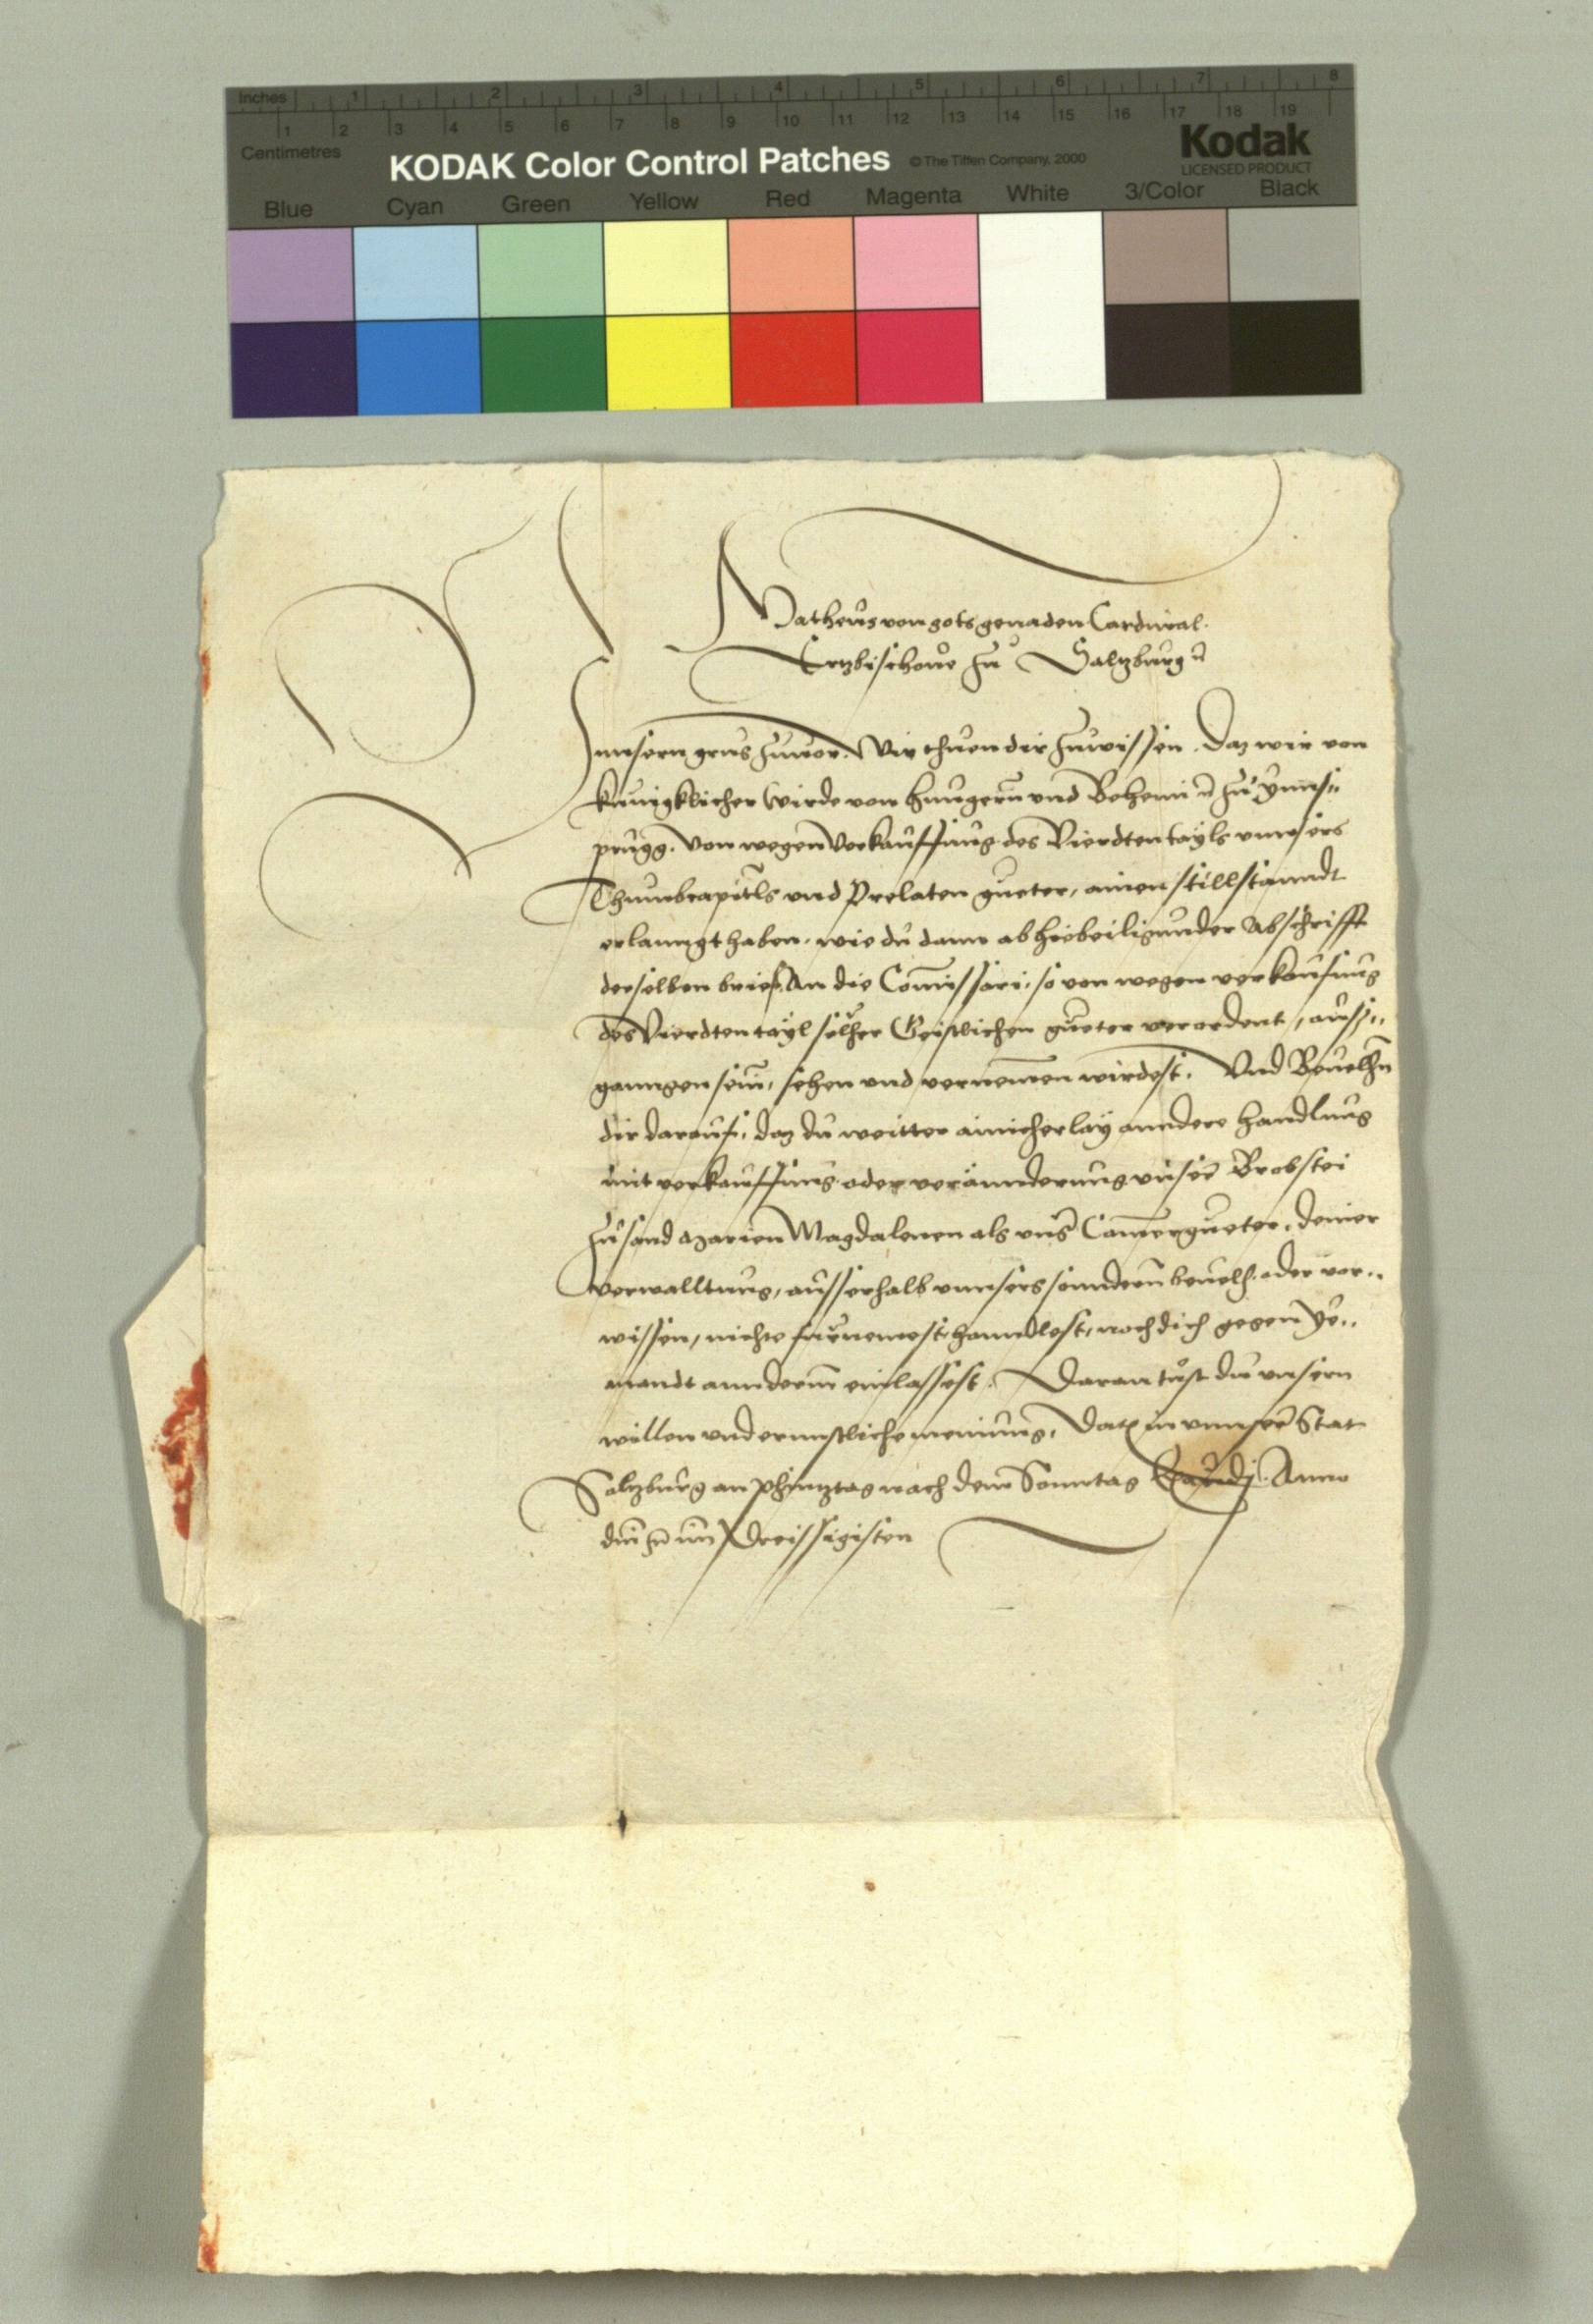 Inches 1 2 3 4 5 6 7 8
1 2 3 4 5 6 7 8 9 10 11 12 13 14 15 16 17 18 19
Centimetres
KODAK Color Control Patches © The Tiffen Company, 2000 Kodak
LICENSED PRODUCT
Blue Cyan Green Yellow Red Magenta White 3/Color Black
Matheus von gots genaden Cardinal
Ertzbischoue zu Saltzburg
Unnsern grus zuuor. Wir thuen dir zuwissen. Daz wir von
kunigklicher wirde von Hungern und Behemi zu Ynns
prugg. Von wegen verkauffung des Vierdten tayls unnsers
Thumbcapitls und Prelaten gueter, ainen stillstanndt
erlanngt haben. wie du dann ab hiebeiligunder Abschrifft
derselben brief, An die Comissari, so von wegen verkaufung
des Vierdten tayl solher Geistlichen gueter verordent, auss
ganngen sein, sehen und vernemen wirdest. Und Beuelhn
dir darauf, daz du weitter ainicherlay anndere hanndlung
mit verkauffung oder veränderung unser Brobstei
zu sand Marien Magdalenen als uns Camerguetter, deiner
verwalltung, ausserhalb unnsers sonndern beuelh oder vor
wissen, nichts furnemest, hanndlest, noch dich gegen Ye
mandt annderm einlassest. Daran tust du unsern
willen und ernnstliche meinung. Dat in unnser Stat
Saltzburg an Phintztag nach dem Sonntag Exaudi. Anno
dni im Dreissigisten